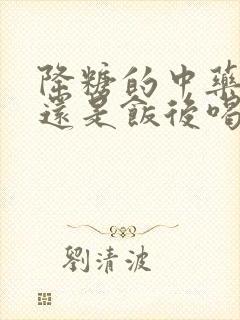 降糖的中藥
還是飯後喝
劉清波